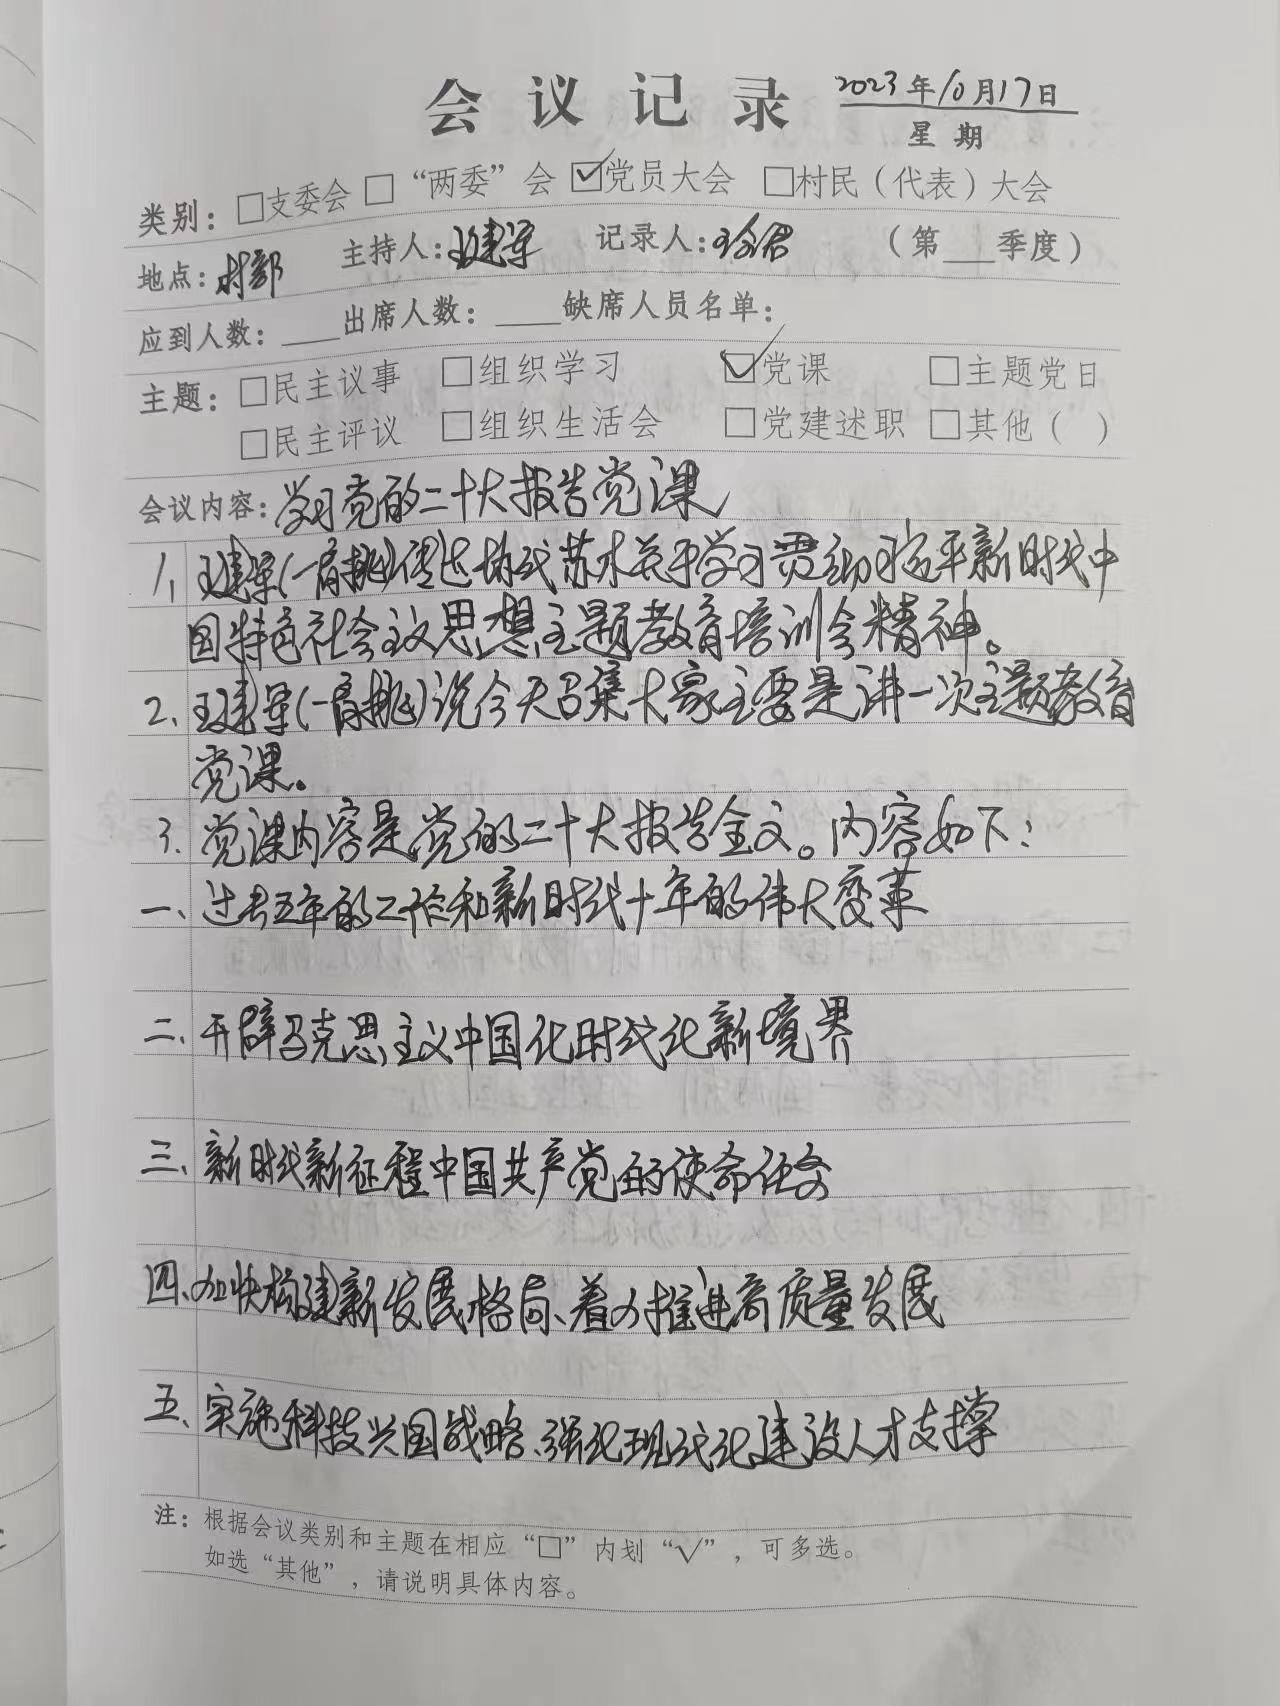 会议记录 2023年10月17日
星期
类别：□支委会 □“两委”会 ☑党员大会 □村民（代表）大会
地点：村部 主持人：王建军 记录人：（第___季度）
应到人数：___出席人数：___缺席人员名单：
主题：□民主议事 □组织学习 ☑党课 □主题党日
□民主评议 □组织生活会 □党建述职 □其他（ ）
会议内容：学习党的二十大报告党课
1、王建军(一肩挑)传达 苏木关于学习贯彻习近平新时代中
国特色社会主义思想主题教育培训会精神。
2、王建军(一肩挑)说今天召集大家主要是讲一次主题教育
党课。
3、党课内容是党的二十大报告全文。内容如下：
一、过去五年的工作和新时代十年的伟大变革
二、开辟马克思主义中国化时代化新境界
三、新时代新征程中国共产党的使命任务
四、加快构建新发展格局、着力推进高质量发展
五、实施科技兴国战略、强化现代化建设人才支撑
注：根据会议类别和主题在相应“□”内划“√”，可多选。
如选“其他”，请说明具体内容。